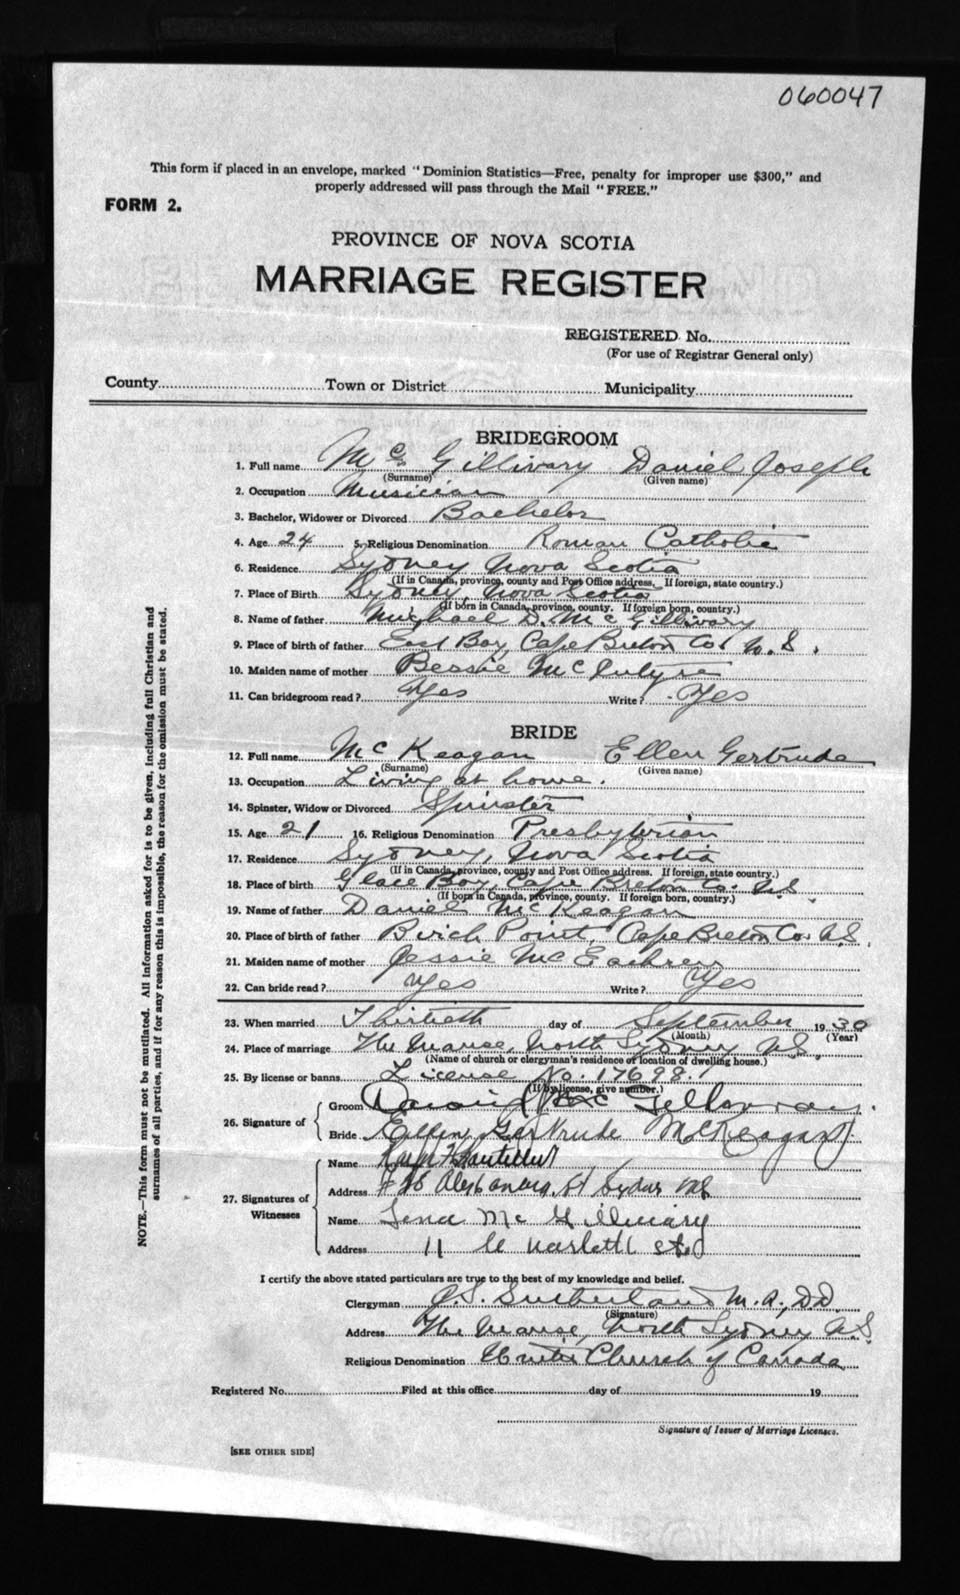 060047
This form if placed in an envelope, marked "Dominion Statistics—Free, penalty for improper use $300," and
properly addressed will pass through the Mail "FREE."
FORM 2.
PROVINCE OF NOVA SCOTIA
MARRIAGE REGISTER
REGISTERED No.
(For use of Registrar General only)
County Town or District Municipality
BRIDEGROOM
1. Full name Mc Gillivary Daniel Joseph
(Surname) (Given name)
2. Occupation Musician
3. Bachelor, Widower or Divorced Bachelor
4. Age 24 5. Religious Denomination Roman Catholic
6. Residence Sydney Nova Scotia
(If in Canada, province, county and Post Office address. If foreign, state country.)
7. Place of Birth Sydney, Nova Scotia
(If born in Canada, province, county. If foreign born, country.)
8. Name of father Michael D. McGillivary
9. Place of birth of father East Bay, Cape Breton Co. N.S.
10. Maiden name of mother Bessie McIntyre
11. Can bridegroom read? Yes Write? Yes
BRIDE
12. Full name Mc Keagan Ellen Gertrude
(Surname) (Given name)
13. Occupation Living at home.
14. Spinster, Widow or Divorced Spinster
15. Age 21 16. Religious Denomination Presbyterian
17. Residence Sydney, Nova Scotia
(If in Canada, province, county and Post Office address. If foreign, state country.)
18. Place of birth Glace Bay, Cape Breton Co. N.S.
(If born in Canada, province, county. If foreign born, country.)
19. Name of father Daniel McKeagan
20. Place of birth of father Birch Point, Cape Breton Co. N.S.
21. Maiden name of mother Jessie McEachren
22. Can bride read? Yes Write? Yes
23. When married Thirtieth day of September 1930
(Month) (Year)
24. Place of marriage The Manse, North Sydney N.S.
(Name of church or clergyman's residence or location of dwelling house.)
25. By license or banns License No. 17698.
(If by license, give number.)
26. Signature of
Groom Mac
Bride Ellen Gertrude McKeagan
27. Signatures of Witnesses
Name
Address St N.S.
Name Lena McGillivary
Address 11 St.
I certify the above stated particulars are true to the best of my knowledge and belief.
Clergyman J.S. Sutherland M.A., D.D.
(Signature)
Address The Manse, North Sydney N.S.
Religious Denomination United Church of Canada
Registered No. Filed at this office day of 19
Signature of Issuer of Marriage Licenses.
[SEE OTHER SIDE]
NOTE.—This form must not be mutilated. All information asked for is to be given, including full Christian and
surnames of all parties, and if for any reason this is impossible, the reason for the omission must be stated.